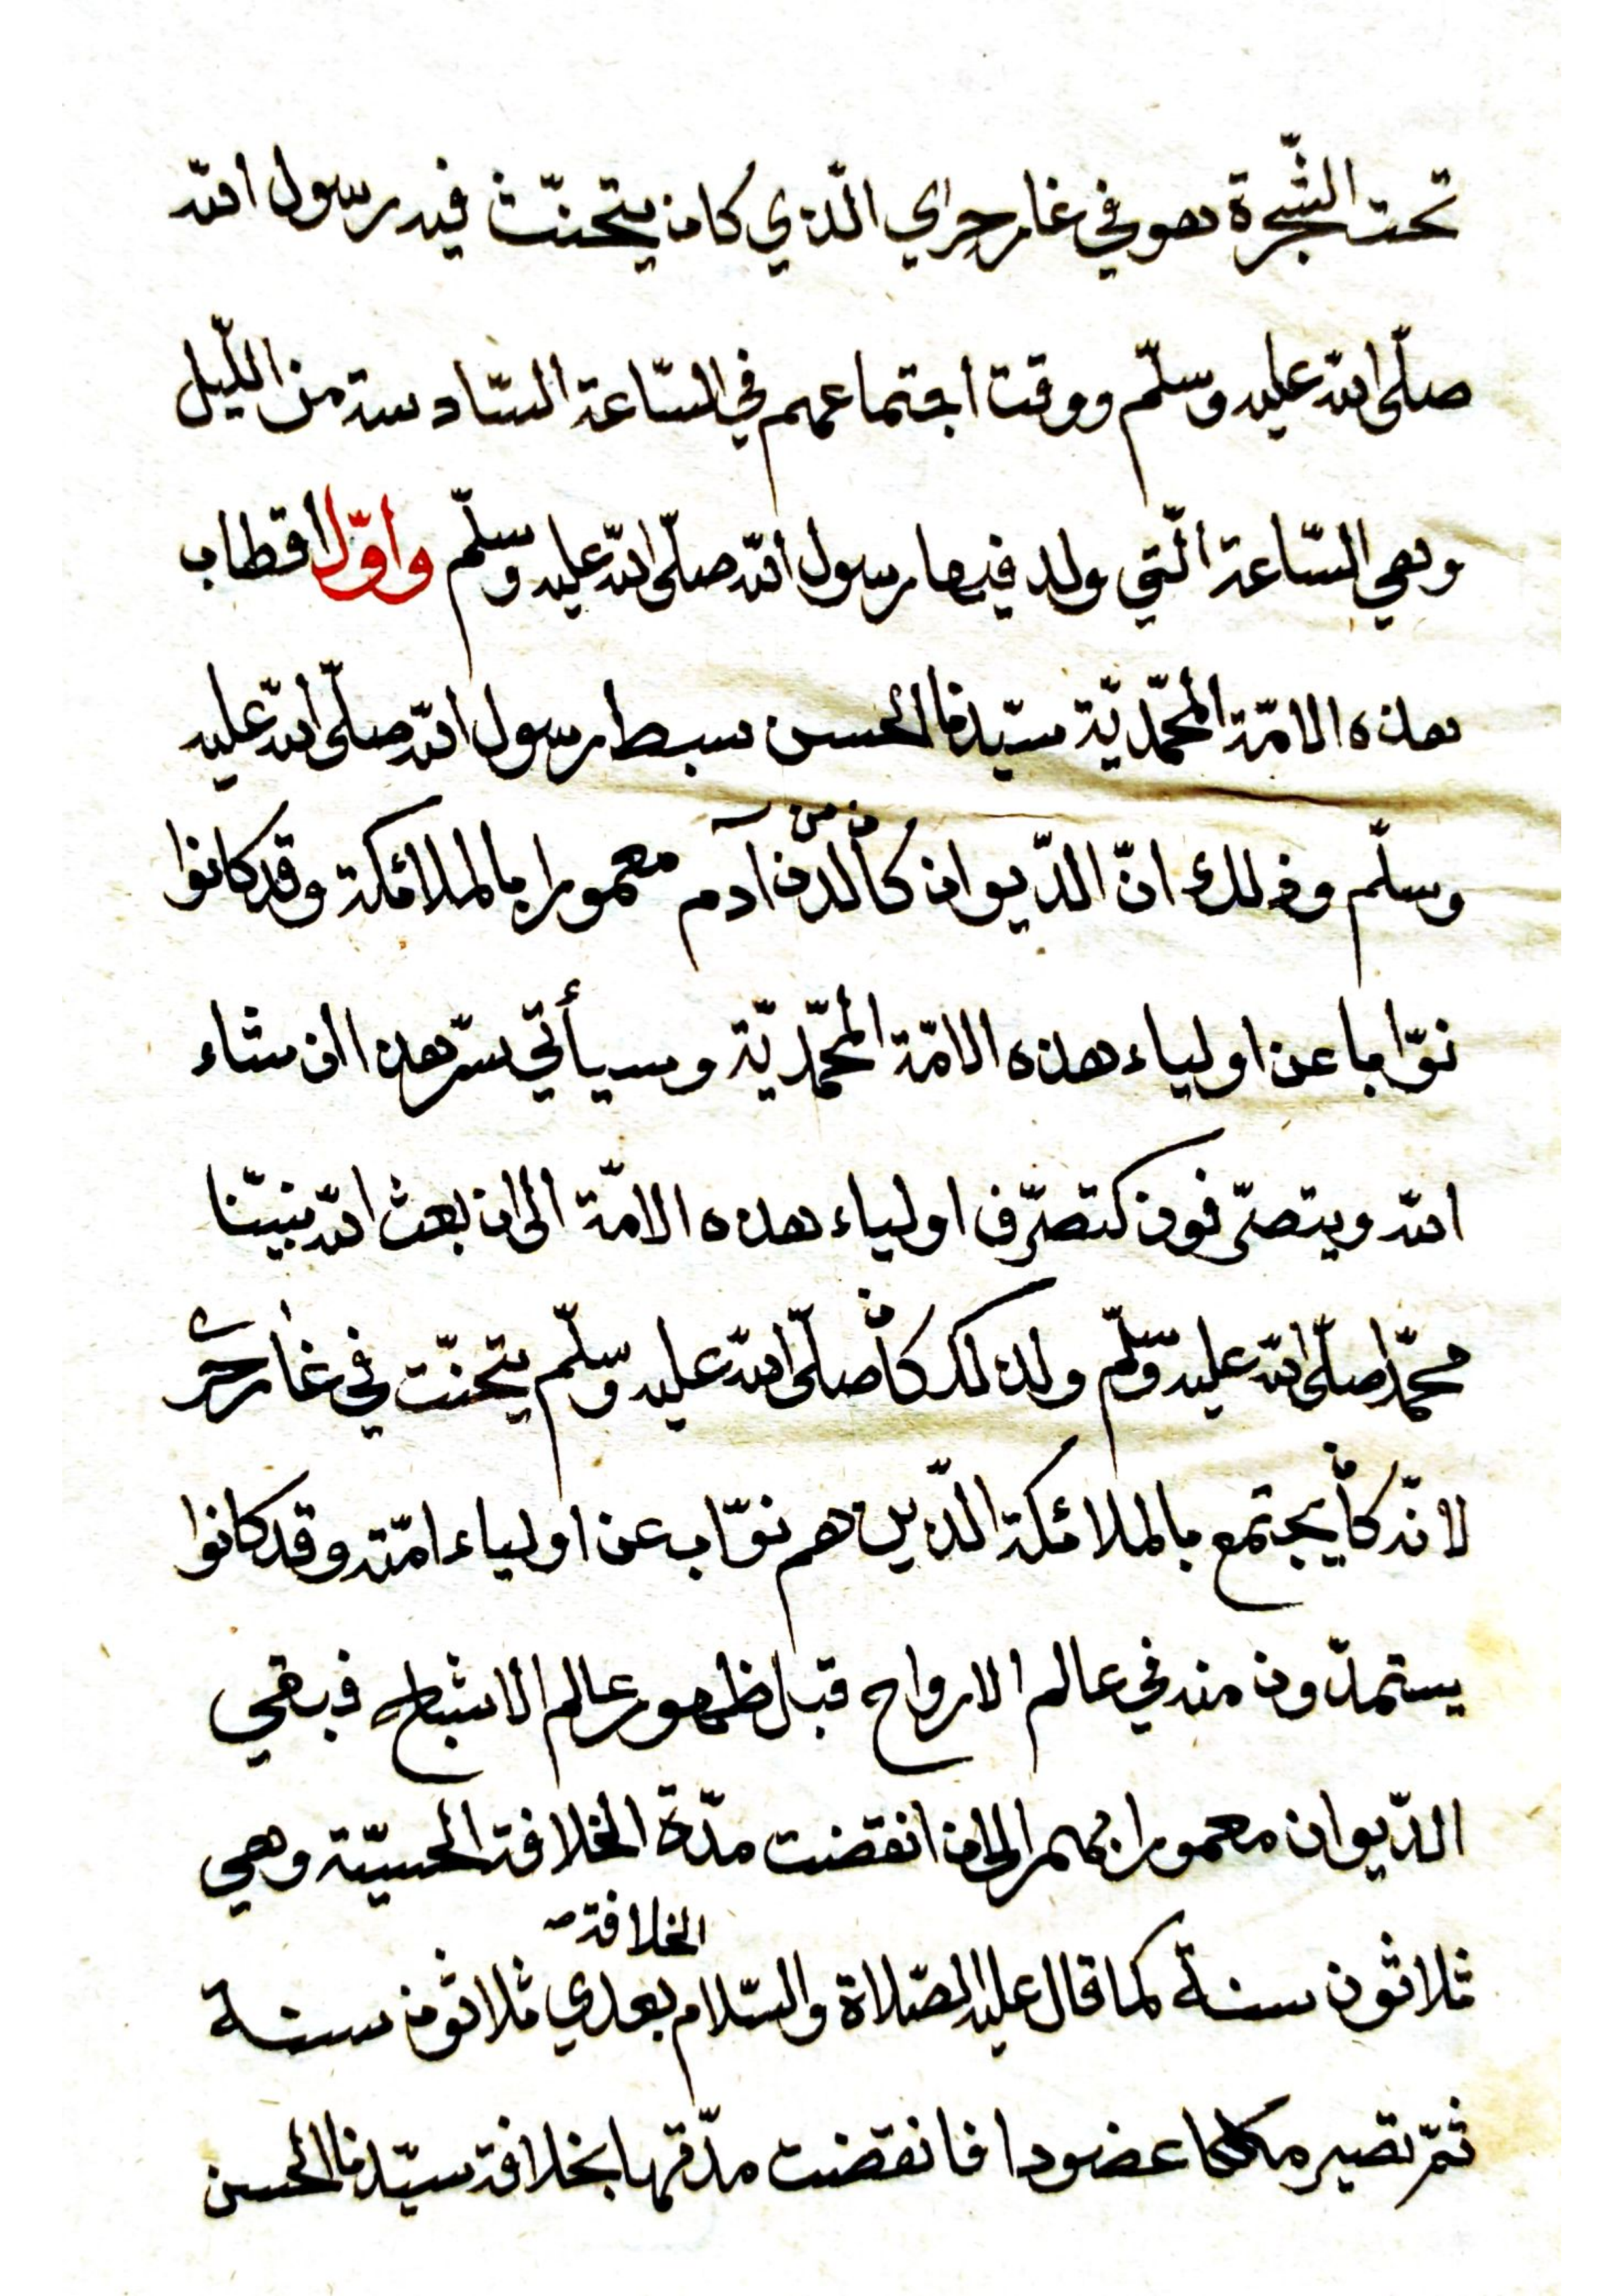 تحت الشّجرة هو في غار حراي الّذي كان يتحنّث فيه رسول الله
صلّى الله عليه وسلّم ووقت اجتماعهم في السّاعة السّادسة من اللّيل
وهي السّاعة الّتي ولد فيها رسول الله صلّى الله عليه وسلّم واوّل اقطاب
هذه الامّة المحمّديّة سيّدنا الحسن سبط رسول الله صلّى الله عليه
وسلّم وذلك انّ الدّيوان كان من لدن آدم معمورا بالملائكة وقد كانوا
نوّابا عن اولياء هذه الامّة المحمّديّة وسيأتي سرّ هذا ان شاء
الله ويتصرّفون كتصرّف اولياء هذه الامّة الى ان بعث الله نبيّنا
محمّدا صلّى الله عليه وسلّم ولذلك كان صلّى الله عليه وسلّم يتحنّت في غار حرى
لانّه كان يجتمع بالملائكة الّذين هم نوّاب عن اولياء امّته وقد كانوا
يستمدّون منه في عالم الارواح قبل ظهور عالم الاشباح فبقي
الدّيوان معمورا بهم الى ان انقضت مدّة الخلافة الحسيّة وهي
ثلاثون سنة كما قال عليه الصّلاة والسّلام الخلافة بعدي ثلاثون سنة
ثمّ تصير ملكا عضودا فانقضت مدّتها بخلافة سيّدنا الحسن